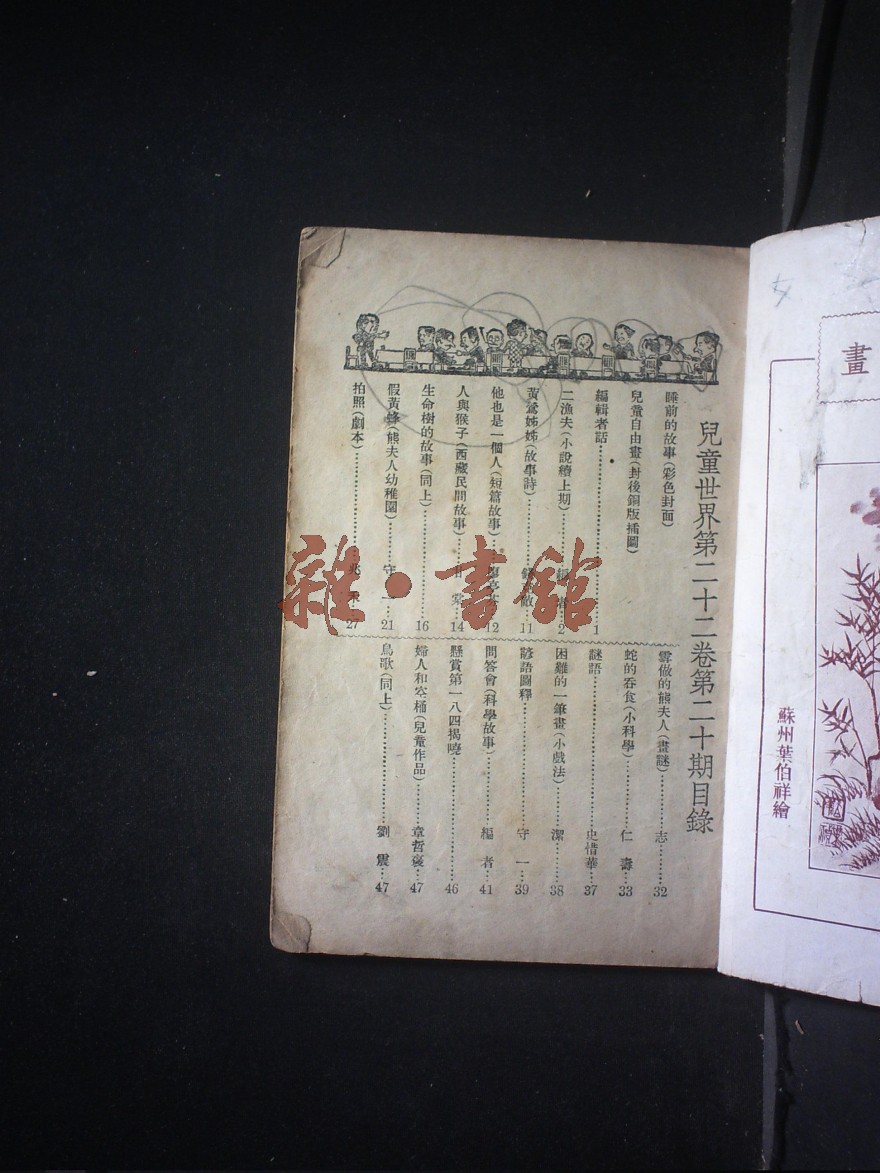 兒童世界第二十二卷第二十期目錄
睡前的故事(彩色封面)
兒童自由畫(封後銅版插圖)
編輯者話 1
二漁夫(小說續上期) 者 2
黃鶯姊姊(故事詩) 11
他也是一個人(短篇故事) 12
人與猴子(西藏民間故事) 甘棠 14
生命樹的故事(同上) 16
假黃蜂(熊夫人幼稚園) 守一 21
拍照(劇本) 兆 27
雲做的熊夫人(畫謎) 志 32
蛇的吞食(小科學) 仁壽 33
謎語 史惜華 37
困難的一筆畫(小戲法) 潔 38
諺語圖釋 守一 39
問答會(科學故事) 編者 41
懸賞第一八四揭曉 46
婦人和空桶(兒童作品) 章哲 47
鳥歌(同上) 劉震 47
雜·書館
畫
蘇州葉伯祥繪